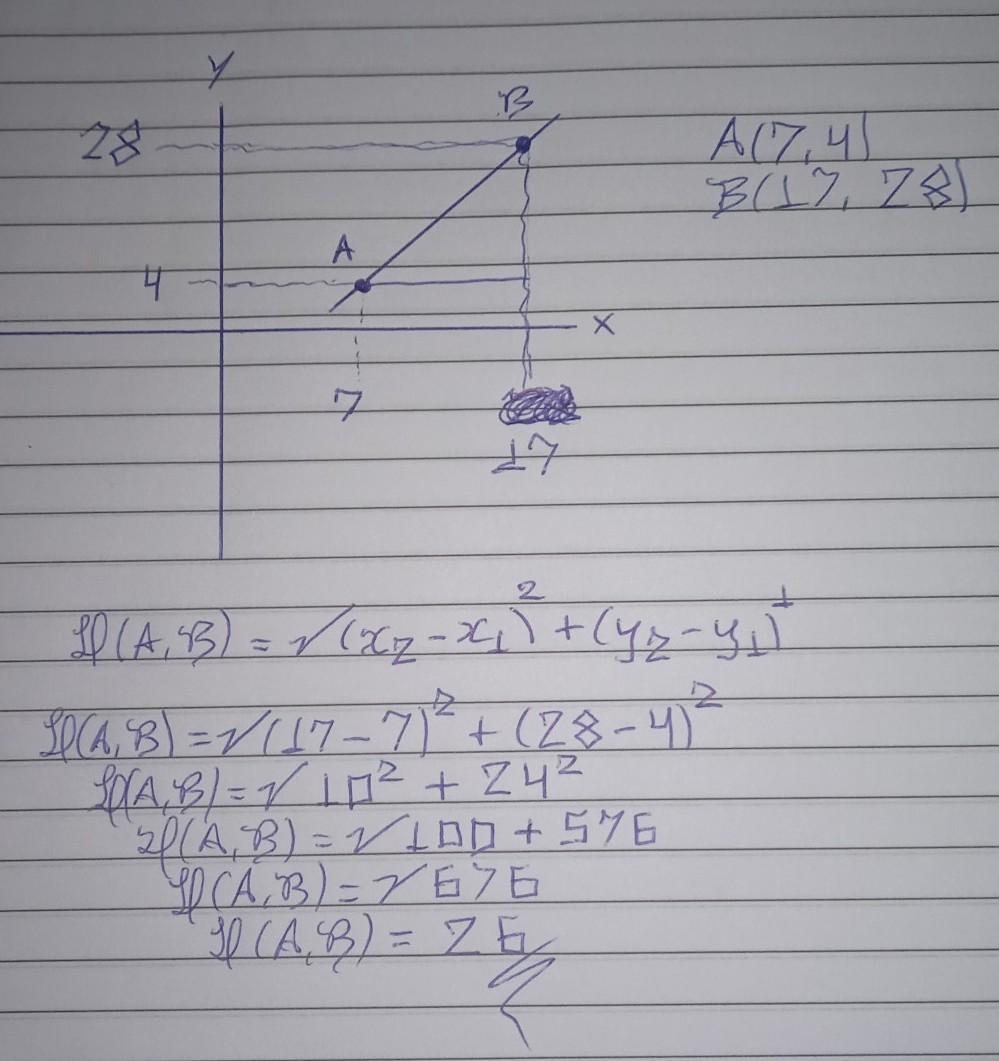 Y
B
28
A(7,4)
B(17, 28)
A
4
X
7
17
d(A,B) = √(x₂-x₁)² + (y₂-y₁)¹
d(A,B) = √(17-7)² + (28-4)²
d(A,B) = √10² + 24²
d(A,B) = √100 + 576
d(A,B) = √676
d(A,B) = 26